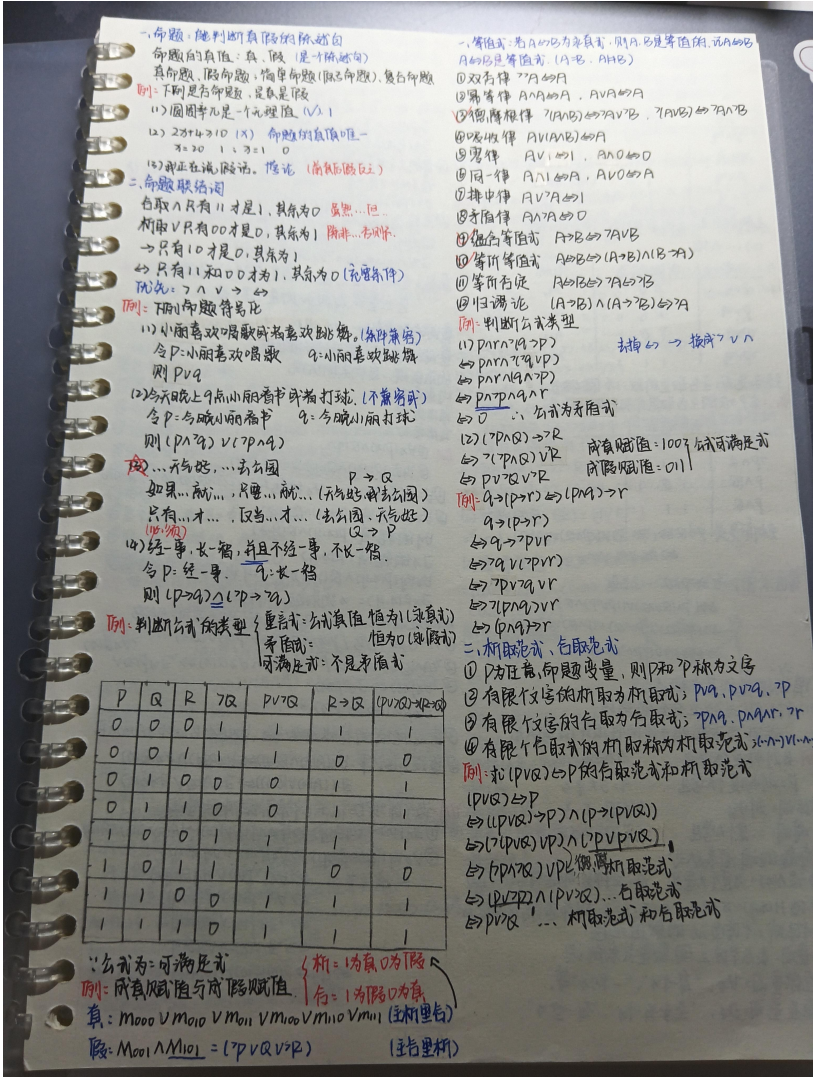 一、命题：能判断真假的陈述句
命题的真值：真、假 (是个陈述句)
真命题、假命题；简单命题(原子命题)、复合命题
例：下列是否命题，是真是假
(1)圆周率π是一个无理值 (√) 1
(2) 2x+4≥10 (×) 命题的真值唯一
x=20 1 x=1 0
(3)我正在说假话。悖论
二、命题联结词
合取∧只有11才是1，其余为0 虽然…但…
析取∨只有00才是0，其余为1 除非…否则…
→只有10才是0，其余为1
⇔只有11和00才为1，其余为0 (充要条件)
优先：ㄱ ∧ ∨ → ⇔
例：下列命题符号化
(1)小丽喜欢唱歌或者喜欢跳舞。(条件兼容)
令P=小丽喜欢唱歌 q=小丽喜欢跳舞
则P∨q
(2)今天晚上9点小丽看书或者打球. (不兼容或)
令P=今晚小丽看书 q=今晚小丽打球
则(P∧ㄱq)∨(ㄱp∧q)
(3)…天气好，…去公园
P→Q
如果…就…，只要…就…(天气好，我去公园)
只有…才…，仅当…才…(去公园、天气好)
(必须) Q→P
(4)经一事，长一智，并且不经一事，不长一智.
令P=经一事. q=长一智
则(P→q)∧(ㄱp→ㄱq)
例：判断公式的类型 重言式：公式真值恒为1(永真式)
矛盾式： 恒为0(永假式)
可满足式：不是矛盾式
P Q R ㄱQ P∨ㄱQ R→Q (P∨ㄱQ)→(R→Q)
0 0 0 1 1 1 1
0 0 1 1 1 0 0
0 1 0 0 0 1 1
0 1 1 0 0 1 1
1 0 0 1 1 1 1
1 0 1 1 1 0 0
1 1 0 0 1 1 1
1 1 1 0 1 1 1
∵公式为=可满足式
析=1为真0为假
例：成真赋值与成假赋值
合=1为假0为真
真：m000∨m010∨m011∨m100∨m110∨m111 (主析里合)
假：M001∧M101=(ㄱP∨Q∨ㄱR) (主合里析)
一、等值式：若A⇔B为永真式，则A、B是等值的，记A⇔B
A⇔B是等值式. (A=B、A≠B)
①双否律 ㄱㄱA⇔A
②幂等律 A∧A⇔A，A∨A⇔A
③德,摩根律 ㄱ(A∧B)⇔ㄱA∨ㄱB，ㄱ(A∨B)⇔ㄱA∧ㄱB
④吸收律 A∨(A∧B)⇔A
⑤零律 A∨1⇔1，A∧0⇔0
⑥同一律 A∧1⇔A，A∨0⇔A
⑦排中律 A∨ㄱA⇔1
⑧矛盾律 A∧ㄱA⇔0
⑨蕴含等值式 A→B⇔ㄱA∨B
⑩等价等值式 A⇔B⇔(A→B)∧(B→A)
⑪等价否定 A⇔B⇔ㄱA⇔ㄱB
⑫归谬论 (A→B)∧(A→ㄱB)⇔ㄱA
例：判断公式类型
(1) p∧r∧ㄱ(q→p) 去掉⇔ → 换成ㄱ∨∧
⇔p∧r∧ㄱ(ㄱq∨p)
⇔p∧r∧(q∧ㄱp)
⇔p∧ㄱp∧q∧r
⇔0 ∴公式为矛盾式
(2)(ㄱp∧Q)→ㄱR 成真赋值=100 公式可满足式
⇔ㄱ(ㄱp∧Q)∨ㄱR 成假赋值=011
⇔p∨ㄱQ∨ㄱR
例：q→(p→r)⇔(p∧q)→r
q→(p→r)
⇔q→ㄱp∨r
⇔ㄱq∨(ㄱp∨r)
⇔ㄱp∨ㄱq∨r
⇔ㄱ(p∧q)∨r
⇔(p∧q)→r
二、析取范式、合取范式
①P为任意命题变量，则P和ㄱP称为文字
②有限个文字的析取为析取式；p∨q，p∨ㄱq，ㄱp
③有限个文字的合取为合取式；ㄱp∧q，p∧q∧r，ㄱr
④有限个合取式的析取称为析取范式；(…∧…)∨(…∧…)
例：求(P∨Q)⇔P的合取范式和析取范式
(P∨Q)⇔P
⇔((P∨Q)→P)∧(P→(P∨Q))
⇔(ㄱ(P∨Q)∨P)∧(ㄱP∨P∨Q)
⇔(ㄱP∧ㄱQ)∨P 析取范式
⇔(P∨ㄱP)∧(P∨ㄱQ)…合取范式
⇔P∨ㄱQ … 析取范式和合取范式